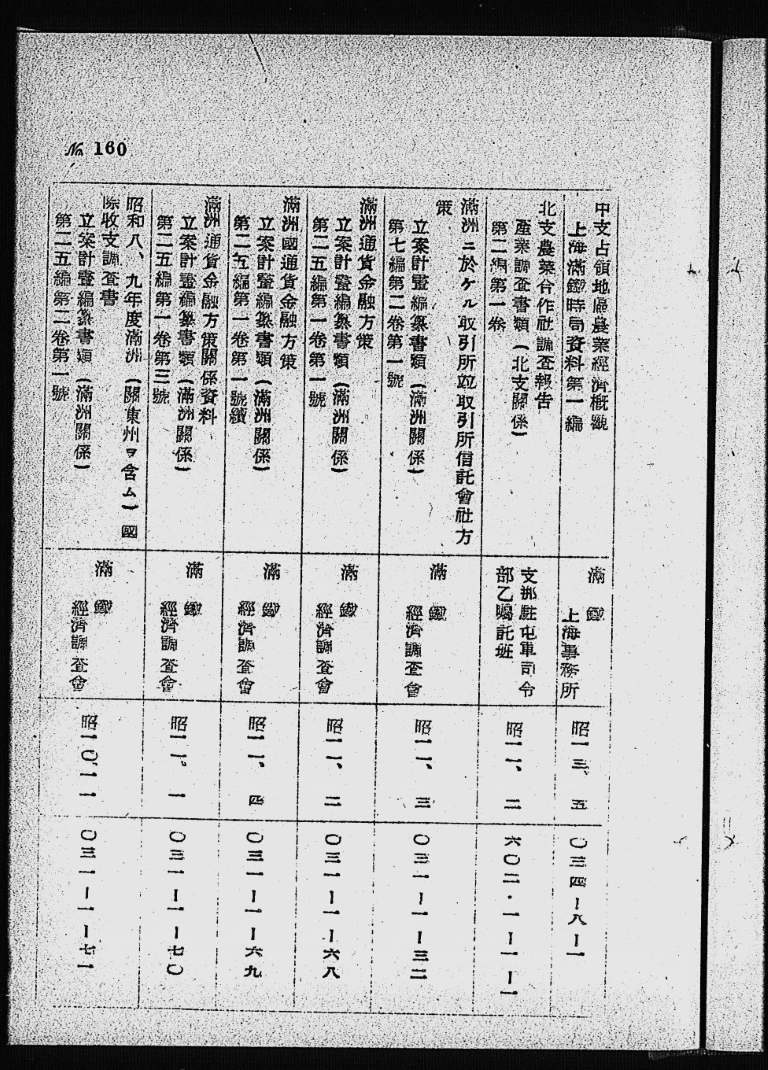 No. 160
中支占領地區農業經濟概觀
上海滿鐵時局資料第一編
滿鐵
上海事務所
昭一三、五
〇三四ー八ー一
北支農業合作社調査報告
産業調査書類(北支關係)
第二編第一卷
支那駐屯軍司令
部乙囑託班
昭一一、二
六〇二・一ー一ー一
滿洲ニ於ケル取引所竝取引所信託會社方
策
立案計畫編纂書類(滿洲關係)
第七編第二卷第一號
滿鐵
經濟調査會
昭一一、三
〇三一ー一ー三二
滿洲通貨金融方策
立案計畫編纂書類(滿洲關係)
第二五編第一卷第一號
滿鐵
經濟調査會
昭一一、二
〇三一ー一ー六八
滿洲國通貨金融方策
立案計畫編纂書類(滿洲關係)
第二五編第一卷第一號續
滿鐵
經濟調査會
昭一一、四
〇三一ー一ー六九
滿洲通貨金融方策關係資料
立案計畫編纂書類(滿洲關係)
第二五編第一卷第三號
滿鐵
經濟調査會
昭一一。一
〇三一ー一ー七〇
昭和八、九年度滿洲(關東州ヲ含ム)國
際收支調査書
立案計畫編纂書類(滿洲關係)
第二五編第二卷第一號
滿鐵
經濟調査會
昭一〇、一一
〇三一ー一ー七一